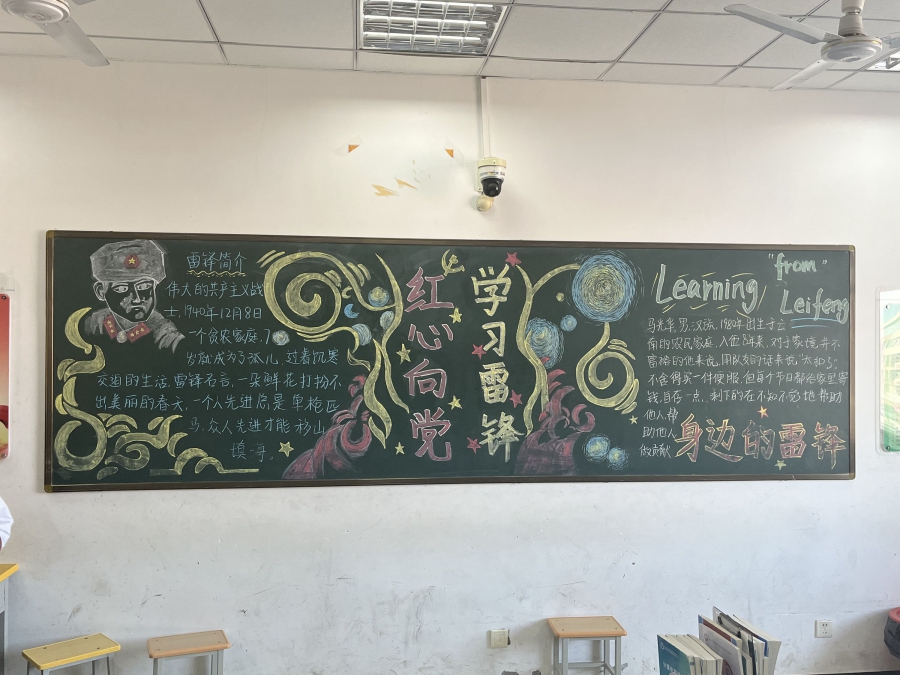 雷锋简介
伟大的共产主义战
士,1940年12月8日
一个贫农家庭,7
岁就成为了孤儿,过着饥寒
交迫的生活,雷锋名言,一朵鲜花打扮不
出美丽的春天,一个人先进总是单枪匹
马,众人先进才能移山
填海。
红心向党
学习雷锋
Learning
"from"
Leifeng
男,汉族,1980年出生于云
南的农民家庭,入伍8年来,对于家境并不
富裕的他来说,用队友的话来说,"太抠"
不舍得买一件便服,但每个节日都给家里寄
钱,自存一点,剩下的在不知不觉地帮助
他人,帮
助他人
做贡献
身边的雷锋